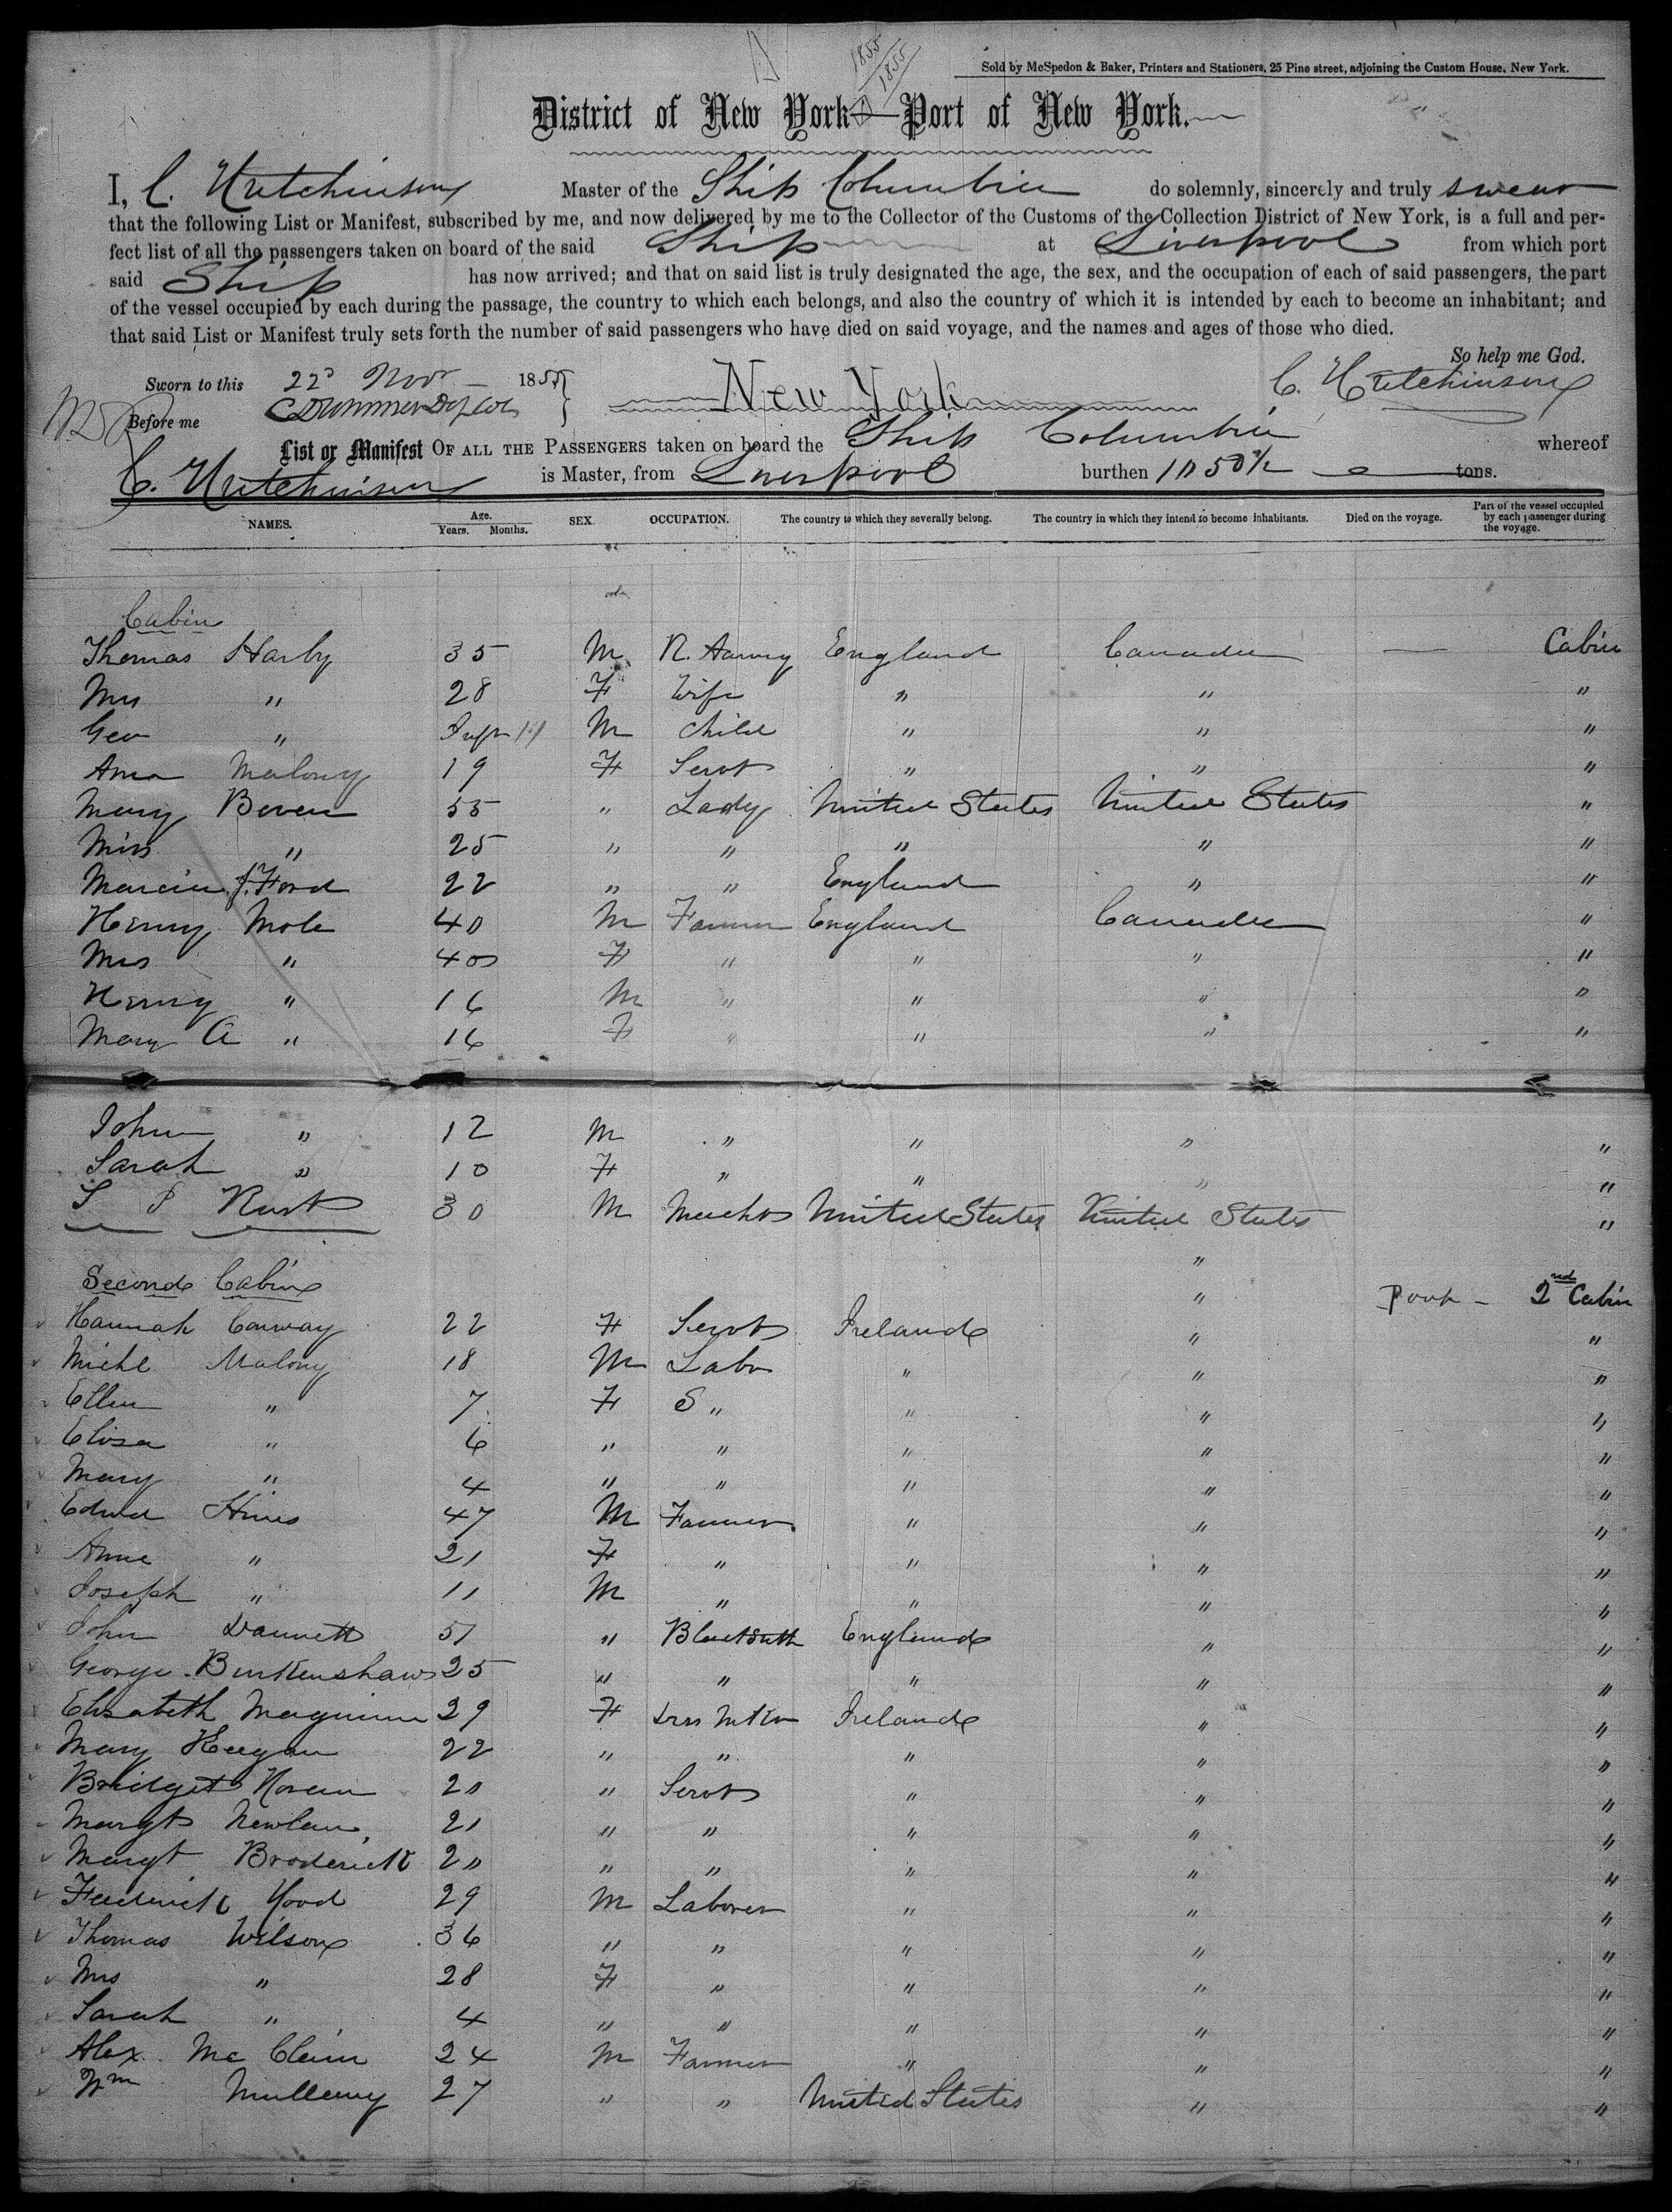 1855
1855
Sold by McSpedon & Baker, Printers and Stationers, 25 Pine street, adjoining the Custom House, New York.
District of New York—Port of New York.
I, C. Hutchinson Master of the Ship Columbia do solemnly, sincerely and truly swear
that the following List or Manifest, subscribed by me, and now delivered by me to the Collector of the Customs of the Collection District of New York, is a full and per-
fect list of all the passengers taken on board of the said Ship at Liverpool from which port
said Ship has now arrived; and that on said list is truly designated the age, the sex, and the occupation of each of said passengers, the part
of the vessel occupied by each during the passage, the country to which each belongs, and also the country of which it is intended by each to become an inhabitant; and
that said List or Manifest truly sets forth the number of said passengers who have died on said voyage, and the names and ages of those who died.
So help me God.
Sworn to this 22d Novr 1855 New York C. Hutchinson
Before me
List or Manifest OF ALL THE PASSENGERS taken on board the Ship Columbia whereof
C. Hutchinson is Master, from Liverpool burthen 1050 tons.
NAMES. Age. Years. Months. SEX. OCCUPATION. The country to which they severally belong. The country in which they intend to become inhabitants. Died on the voyage. Part of the vessel occupied by each passenger during the voyage.
Cabin
Thomas Harby 35 M R. Army England Canada — Cabin
Mrs " 28 F Wife " " "
Geo " M Child " " "
Ann Malony 19 F Servt " " "
Mary Beven 55 " Lady United States United States "
Miss " 25 " " " " "
Ford 22 " " England " "
Henry Mole 40 M Farmer England Canada "
Mrs " 40 F " " " "
Henry " 16 M " " " "
Mary A " 16 F " " " "
John " 12 M " " " "
Sarah " 10 F " " " "
S Rust 30 M United States United States "
"
Second Cabin
" Poop - 2nd Cabin
Hannah Conway 22 F Servt Ireland " "
Michl Malony 18 M Labr " " "
Ellen " 7 F S " " " "
Elisa " 6 " " " " "
Mary " 4 " " " " "
Edwd Hines 47 M Farmer " " "
Anne " 21 F " " " "
Joseph " 11 M " " " "
John Dannett 51 " Blacksmth England " "
George Burkenshaw 25 " " " " "
Elisabeth Maguinn 29 F Ireland " "
Mary Keegan 22 " " " " "
Bridget Horan 20 " Servt " " "
Margt Newlan 21 " " " " "
Margt Broderick 20 " " " " "
Frederick Hood 29 M Laborer " " "
Thomas Wilson 36 " " " " "
Mrs " 28 F " " " "
Sarah " 4 " " " " "
Alex Mc Clain 24 M Farmer " " "
Wm Mulleny 27 " " United States " "